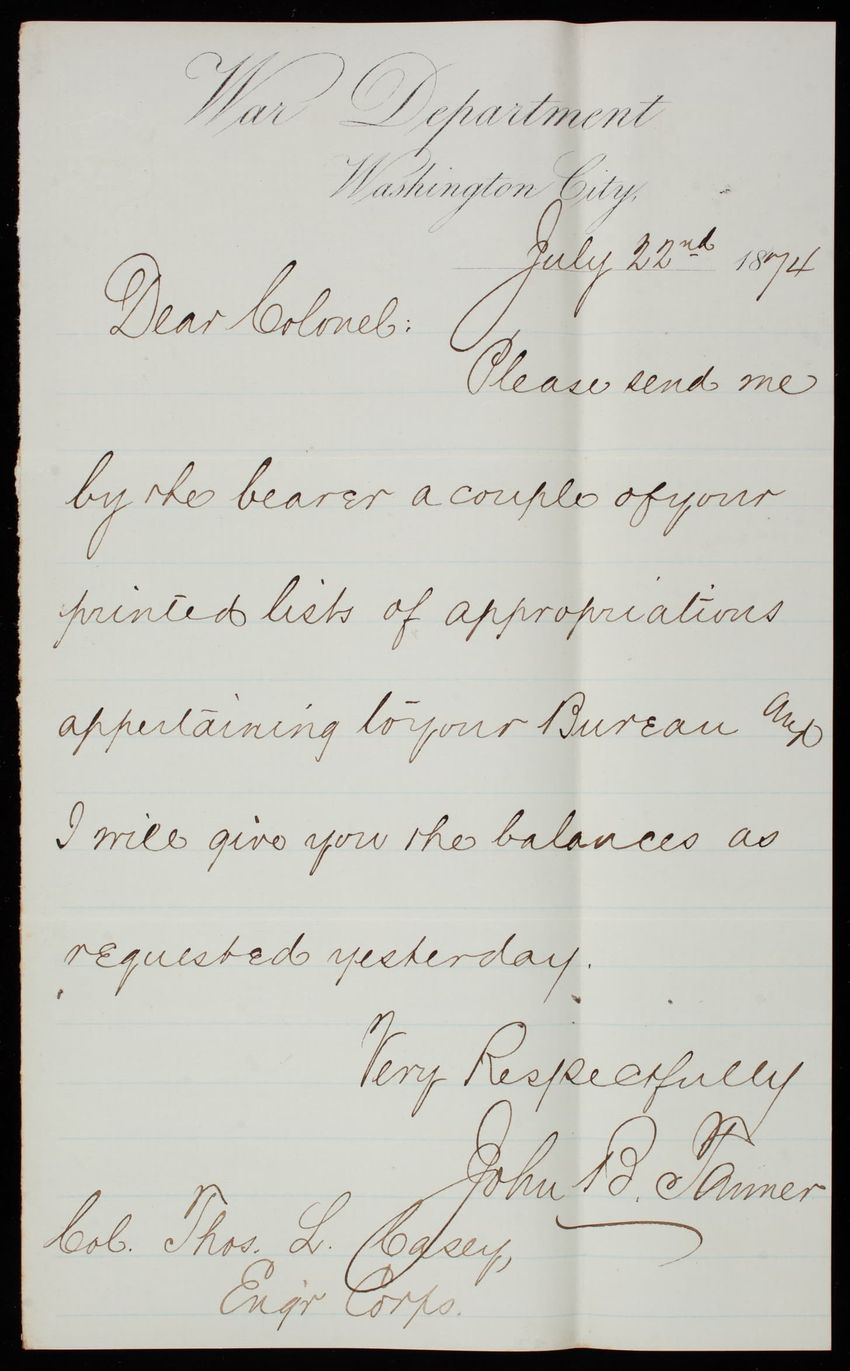 War Department
Washington City,
July 22nd 1874
Dear Colonel:
Please send me
by the bearer a couple of your
printed lists of appropriations
appertaining to your Bureau and
I will give you the balances as
requested yesterday.
Very Respectfully
John B. Tanner
Col. Thos. L. Casey,
Eng'r Corps.